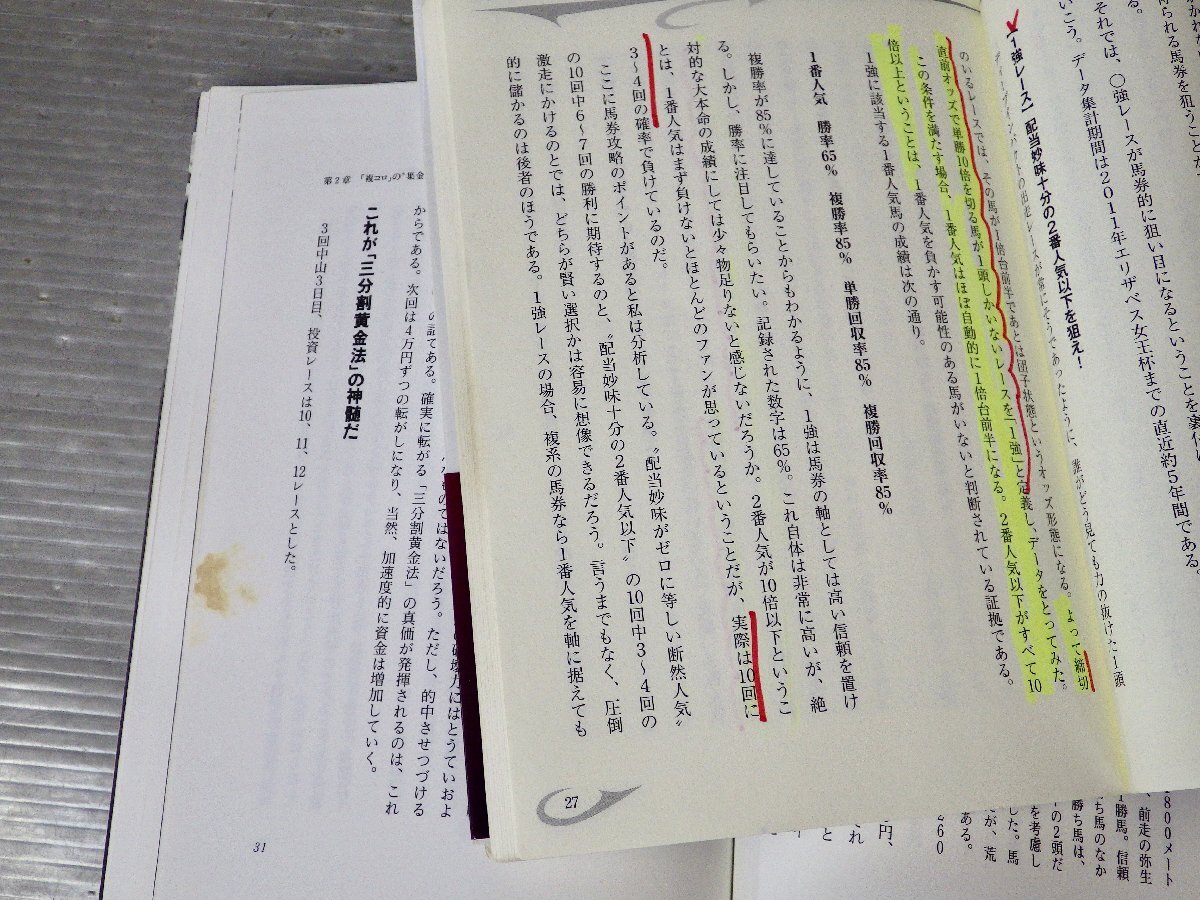 かれな
得られる馬券を狙うことが
いこう。データ集計期間は2011年エリザベス女王杯までの直近約5年間である。
それでは、○強レースが馬券的に狙い目になるということを裏付
る。
【1強レース】 配当妙味十分の2番人気以下を狙え！
ディープインパクトの出走レースが常にそうであったように、誰がどう見ても力の抜けた1頭
のいるレースでは、その馬が1倍台前半であとは団子状態というオッズ形態になる。よって締切
直前オッズで単勝10倍を切る馬が1頭しかいないレースを「1強」と定義し、データをとってみた。
この条件を満たす場合、1番人気はほぼ自動的に1倍台前半になる。2番人気以下がすべて10
倍以上ということは、1番人気を負かす可能性のある馬がいないと判断されている証拠である。
1強に該当する1番人気馬の成績は次の通り。
1番人気 勝率65％ 複勝率85％ 単勝回収率85％ 複勝回収率85％
複勝率が85％に達していることからもわかるように、1強は馬券の軸としては高い信頼を置け
る。しかし、勝率に注目してもらいたい。記録された数字は65％。これ自体は非常に高いが、絶
対的な大本命の成績にしては少々物足りないと感じないだろうか。2番人気が10倍以下というこ
とは、1番人気はまず負けないとほとんどのファンが思っているということだが、実際は10回に
3〜4回の確率で負けているのだ。
ここに馬券攻略のポイントがあると私は分析している。〝配当妙味がゼロに等しい断然人気〟
の10回中6〜7回の勝利に期待するのと、〝配当妙味十分の2番人気以下〟の10回中3〜4回の
激走にかけるのとでは、どちらが賢い選択かは容易に想像できるだろう。言うまでもなく、圧倒
的に儲かるのは後者のほうである。1強レースの場合、複系の馬券なら1番人気を軸に据えても
27
第2章 「複コロ」の“集金
ものではないだろう。ただし、的中させつづける
の証である。確実に転がる「三分割黄金法」の真価が発揮されるのは、これ
からである。次回は4万円ずつの転がしになり、当然、加速度的に資金は増加していく。
これが「三分割黄金法」の神髄だ
3回中山3日目、投資レースは10、11、12レースとした。
31
800メート
、前走の弥生
1勝馬。信頼
ち馬のなか
勝ち馬は、
の2頭だ
を考慮し
した。馬
だが、荒
ある。
260
円、